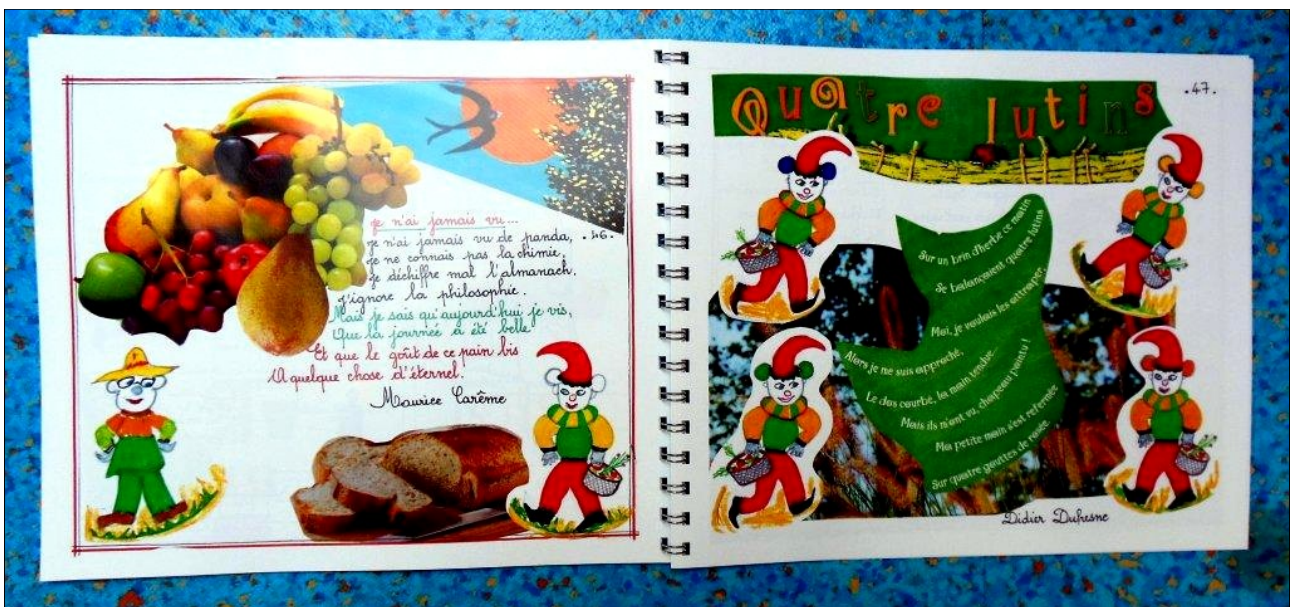 je n'ai jamais vu...
je n'ai jamais vu de panda,
je ne connais pas la chimie,
je déchiffre mal l'almanach.
j'ignore la philosophie.
Mais je sais qu'aujourd'hui je vis,
Que la journée a été belle
Et que le goût de ce pain bis
A quelque chose d'éternel.
Maurice Carême
.46.
Quatre lutins
.47.
Sur un brin d'herbe ce matin
Se balançaient quatre lutins
Moi, je voulais les attraper,
Alors je me suis approché,
Le dos courbé, la main tendue...
Mais ils m'ont vu, chapeau pointu !
Ma petite main s'est refermée
Sur quatre gouttes de rosée.
Didier Dufresne